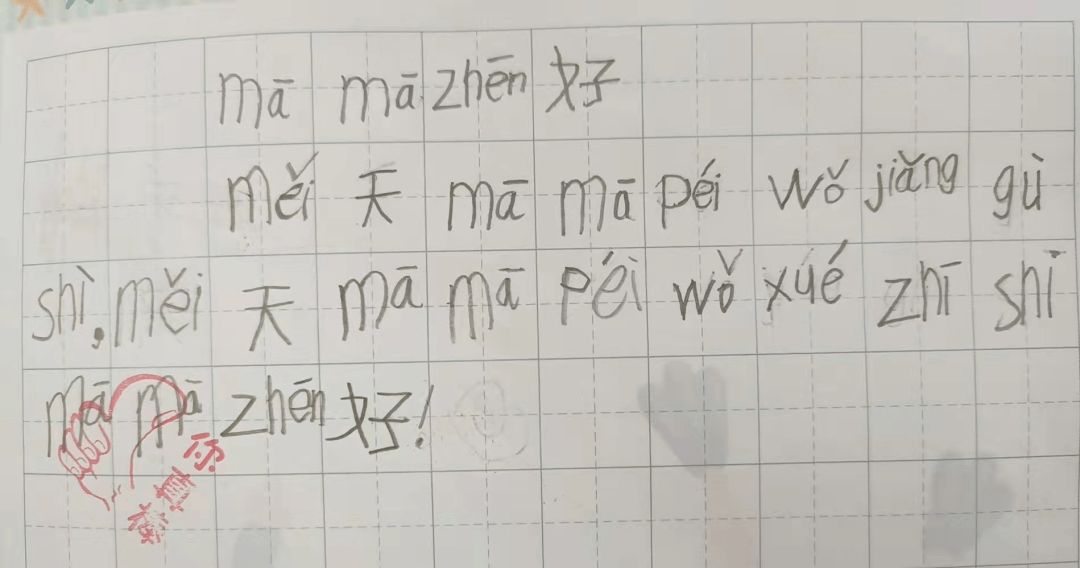 mā mā zhēn 好
měi 天 mā mā péi wǒ jiǎng gù
shì, měi 天 mā mā péi wǒ xué zhī shi
mā mā zhēn 好!